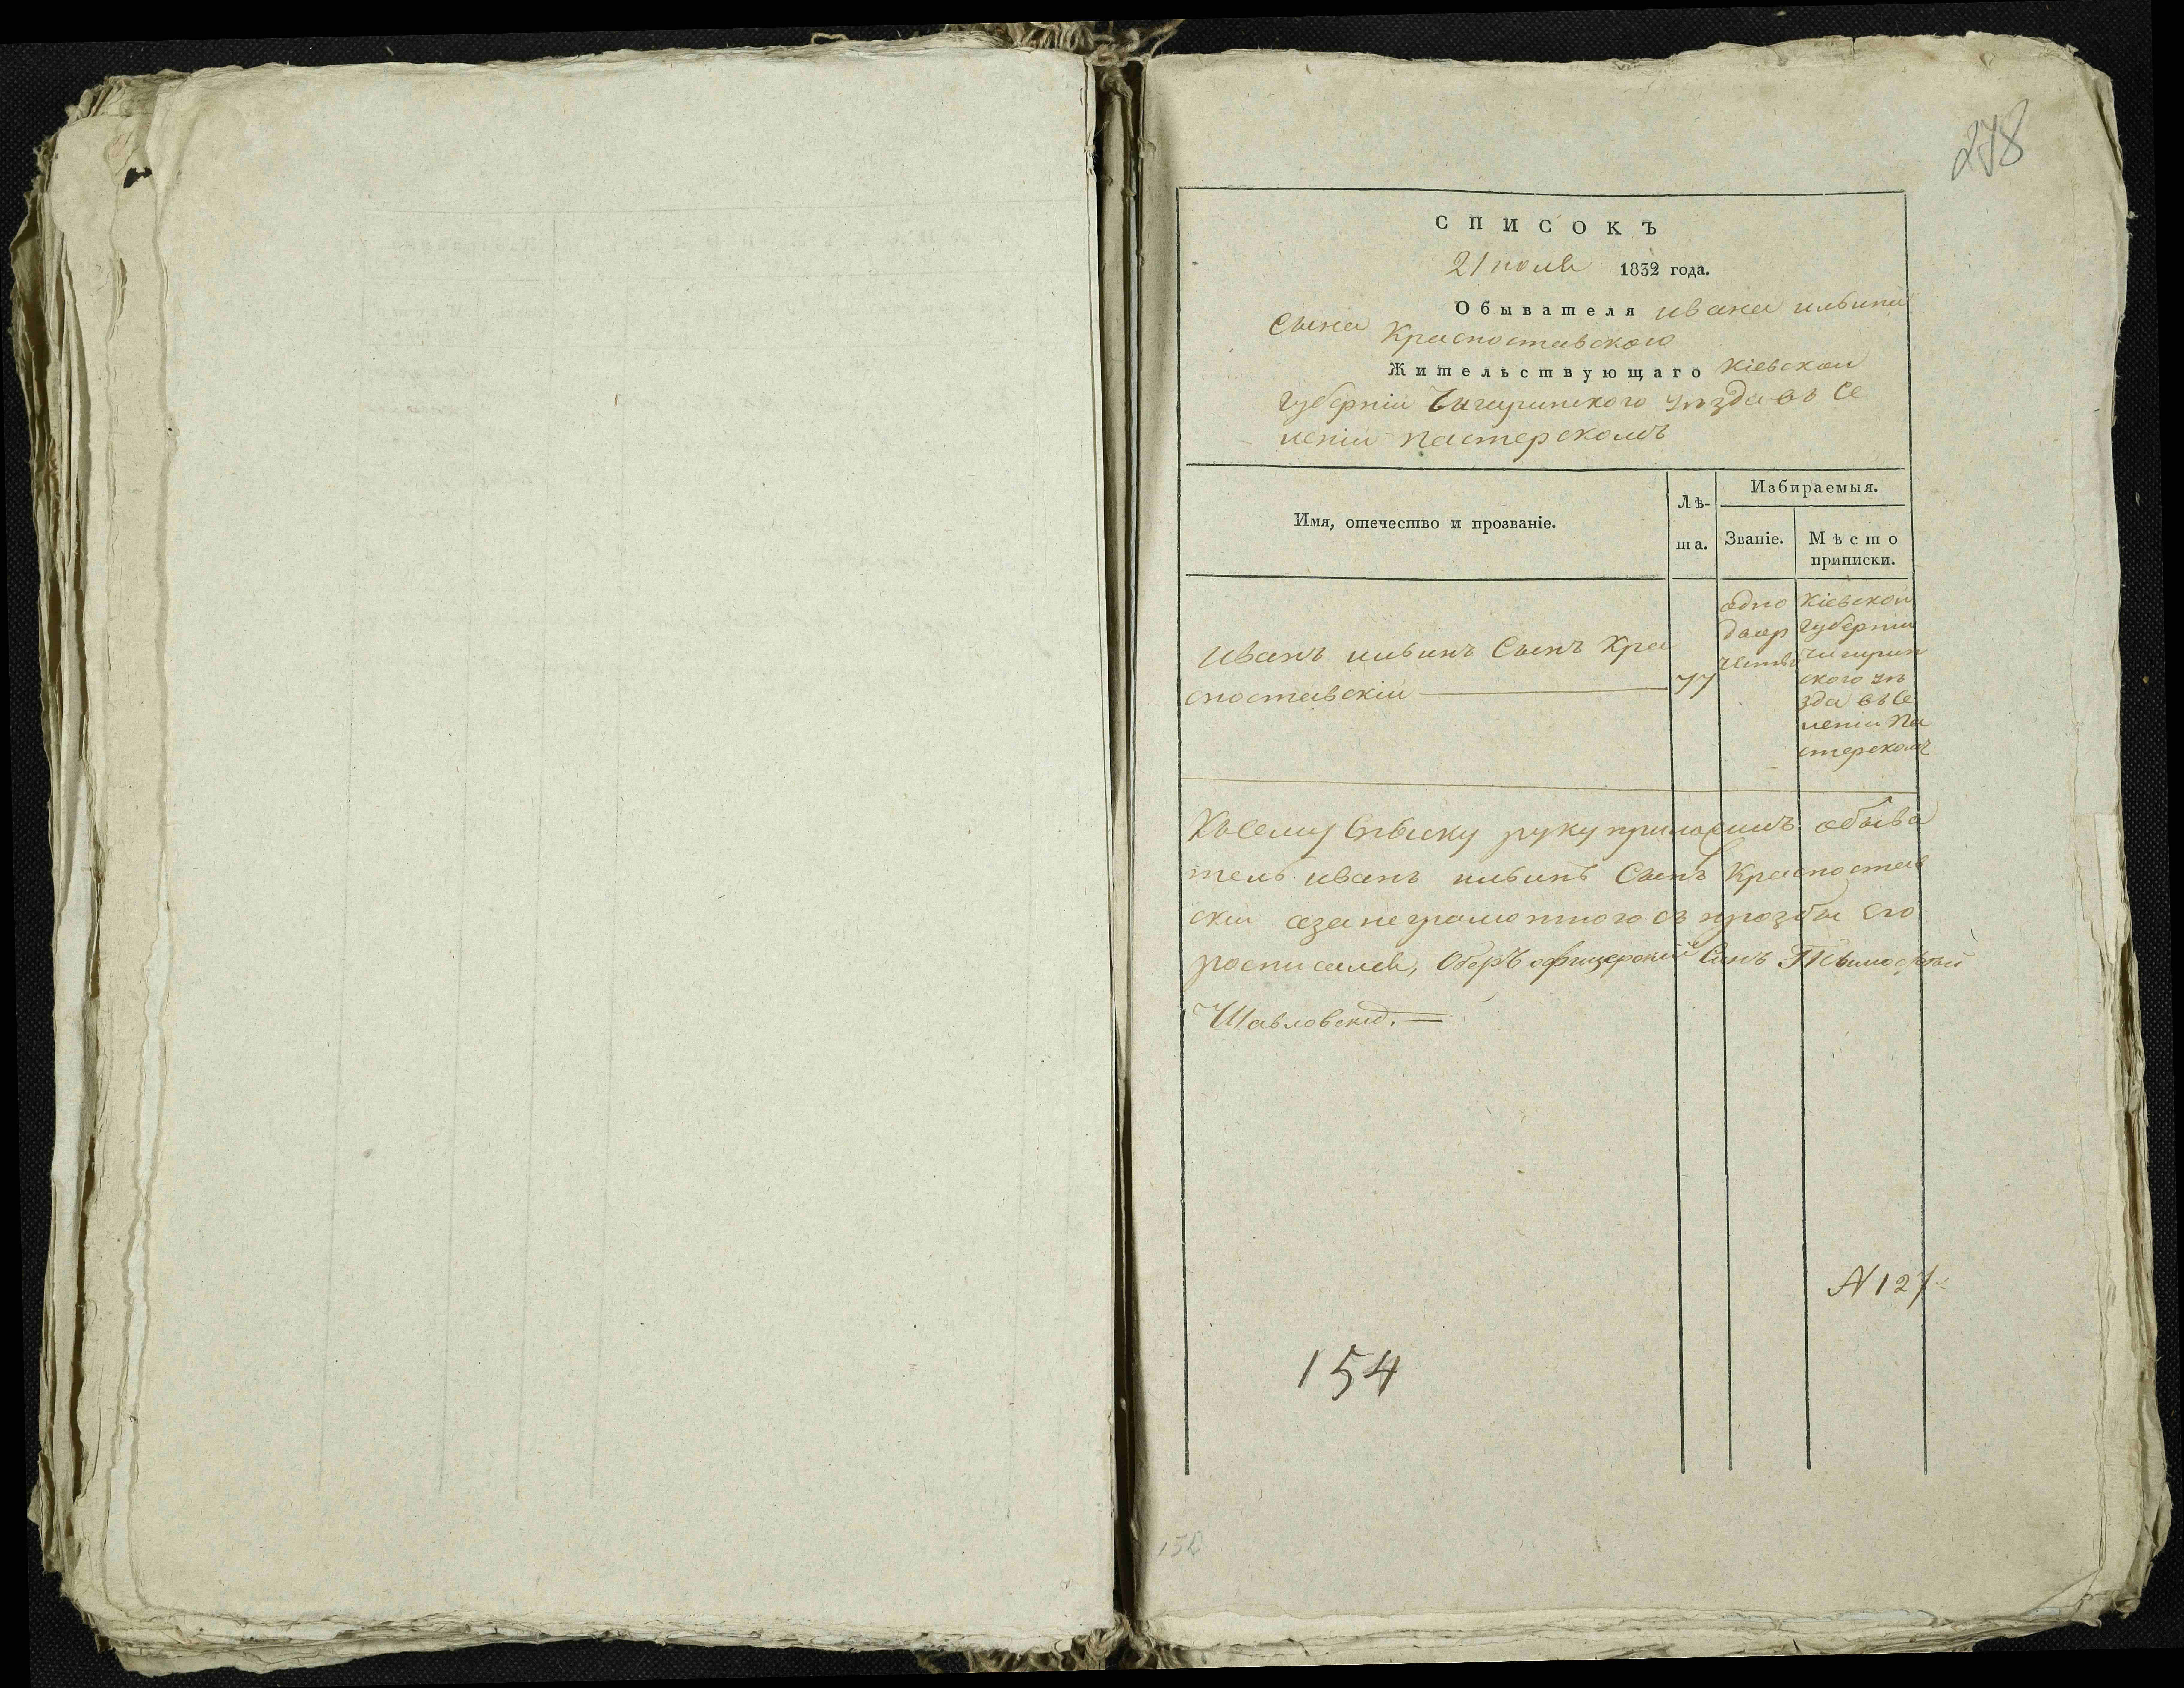 278
СПИСОКЪ
21 июля 1832 года.
Обывателя ивана ильина
Сына Краспоставского
Жительствующаго Кіевской
Губерніи Чигиринского уѣзда въ Се
леніи Пастерскомъ
Имя, отечество и прозваніе.
Лѣ-
та.
Избираемыя.
Званіе.
Мѣсто
приписки.
Иванъ ильинъ Сынъ Кра
споставскій
77
одно
двор
чество
Кіевской
Губерніи
Чигирин
ского уѣ
зда въ Се
леніи Па
стерскомъ
Къ Сему Списку руку приложилъ обыва
тель иванъ ильинъ Сынъ Краспостав
скій а за неграмотного съ прозбы его
росписался, Оберъ офицерскій Синъ
Шавловскій.
N 127
154